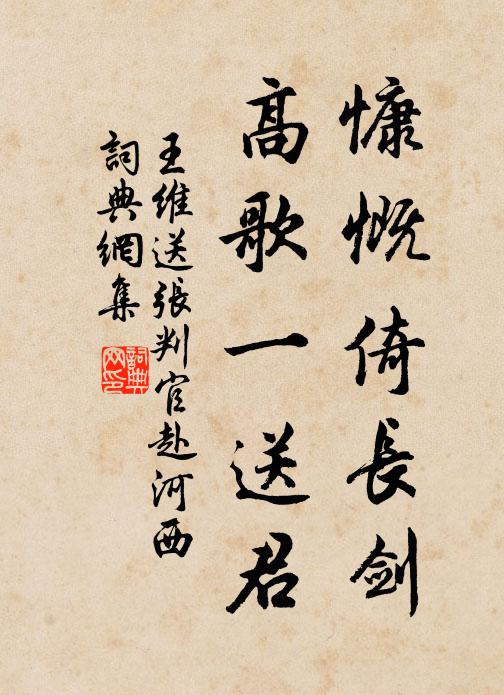 慷慨倚長劍
高歌一送君
王維送張判官赴河西
詞典網集
詞典網印